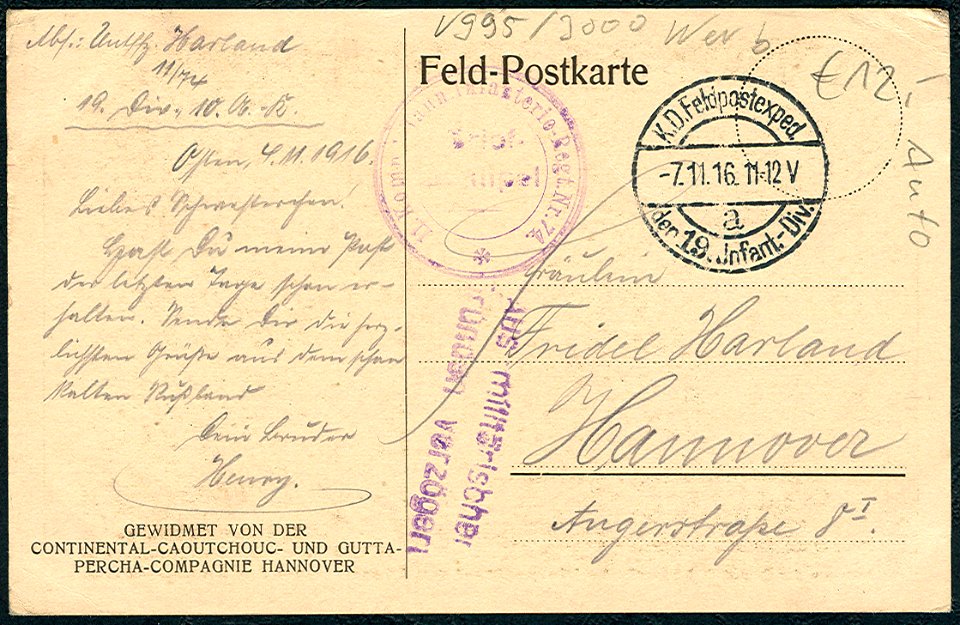 V995/3000 Wer b
€12,-
Auto
Abs.: Untffz. Harland
11/74
19. Div., 10. A.-K.
Osten, 4.11.1916.
Liebes Schwesterchen!
Hast Du meine Post
der letzten Tage schon er-
halten. Sende Dir die herz-
lichsten Grüße aus dem schon
kalten Rußland
Dein Bruder
Henry.
GEWIDMET VON DER
CONTINENTAL-CAOUTCHOUC- UND GUTTA-
PERCHA-COMPAGNIE HANNOVER
Feld-Postkarte
Infanterie-Regt. Nr. 74
Brief-
stempel
K.D. Feldpostexped.
-7.11.16. 11-12 V
a
der 19. Infant.-Div.
Aus militärischen
Gründen verzögert
Fräulein
Fridel Harland
Hannover
Angerstraße 8 I.